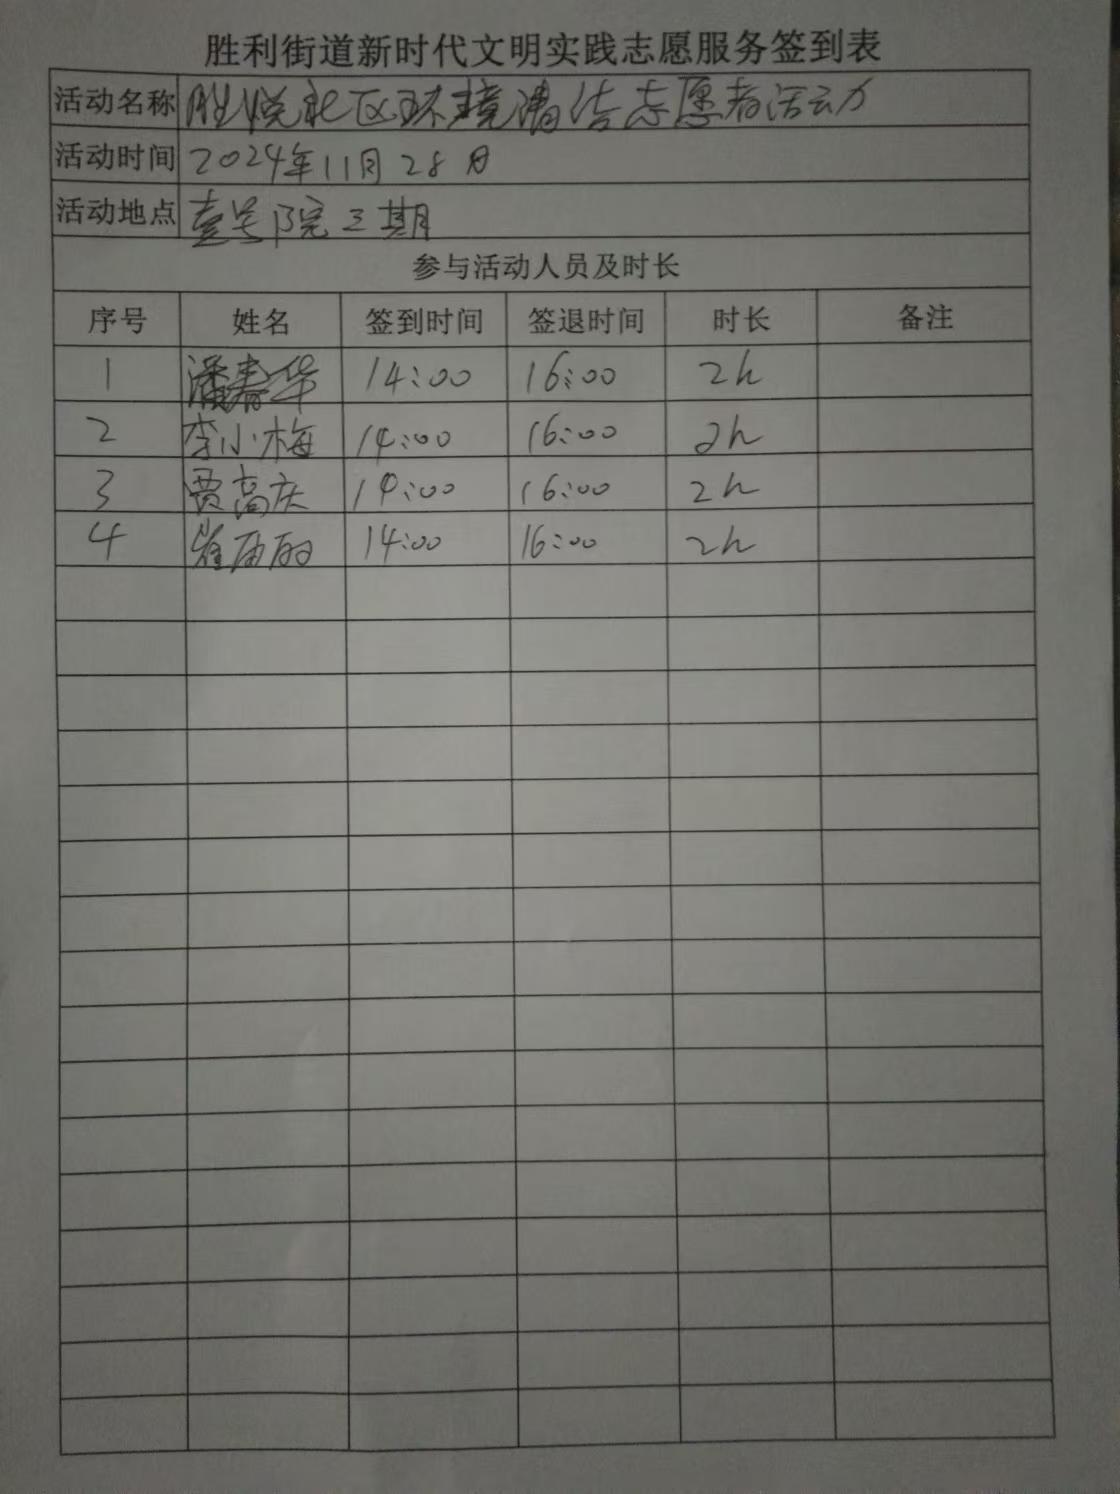 胜利街道新时代文明实践志愿服务签到表
活动名称 胜悦社区环境清洁志愿者活动
活动时间 2024年11月28日
活动地点 壹号院三期
参与活动人员及时长
序号 姓名 签到时间 签退时间 时长 备注
1 潘春华 14:00 16:00 2h
2 李小梅 14:00 16:00 2h
3 贾高庆 14:00 16:00 2h
4 崔丽丽 14:00 16:00 2h